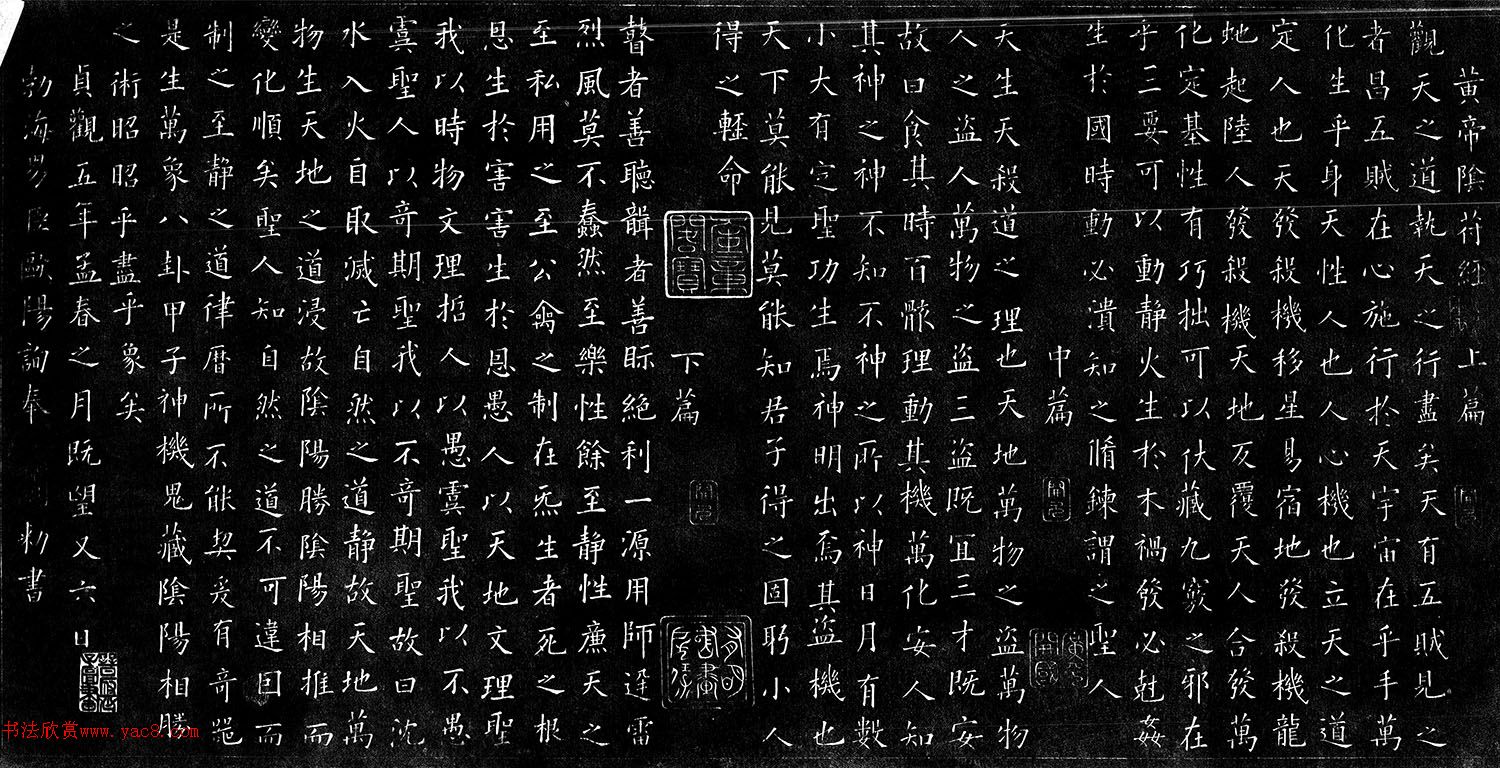 黃帝陰符經 上篇
觀天之道執天之行盡矣天有五賊見之
者昌五賊在心施行於天宇宙在乎手萬
化生乎身天性人也人心機也立天之道
定人也天發殺機移星易宿地發殺機龍
虵起陸人發殺機天地反覆天人合發萬
化定基性有巧拙可以伏藏九竅之邪在
乎三要可以動靜火生於木禍發必尅姦
生於國時動必潰知之脩鍊謂之聖人
中篇
天生天殺道之理也天地萬物之盜萬物
人之盜人萬物之盜三盜既冝三才既安
故曰食其時百骸理動其機萬化安人知
其神之神不知不神之所以神日月有數
小大有定聖功生焉神明出焉其盜機也
天下莫能見莫能知君子得之固躬小人
得之輕命
下篇
瞽者善聽聾者善眎絕利一源用師
烈風莫不蠢然至樂性餘至靜性廉天之
至私用之至公禽之制在炁生者死之根
恩生於害害生於恩愚人以天地文理聖
我以時物文理哲人以愚虞聖我以不愚
虞聖人以奇期聖我以不奇期聖故曰沈
水入火自取滅亡自然之道靜故天地萬
物生天地之道浸故陰陽勝陰陽相推而
變化順矣聖人知自然之道不可違因而
制之至靜之道律曆所不能契爰有奇器
是生萬象八卦甲子神機鬼藏陰陽相勝
之術昭昭乎盡乎象矣
貞觀五年孟春之月既望又六日
勃海男臣歐陽詢奉 勅書
书法欣赏www.yac8.com